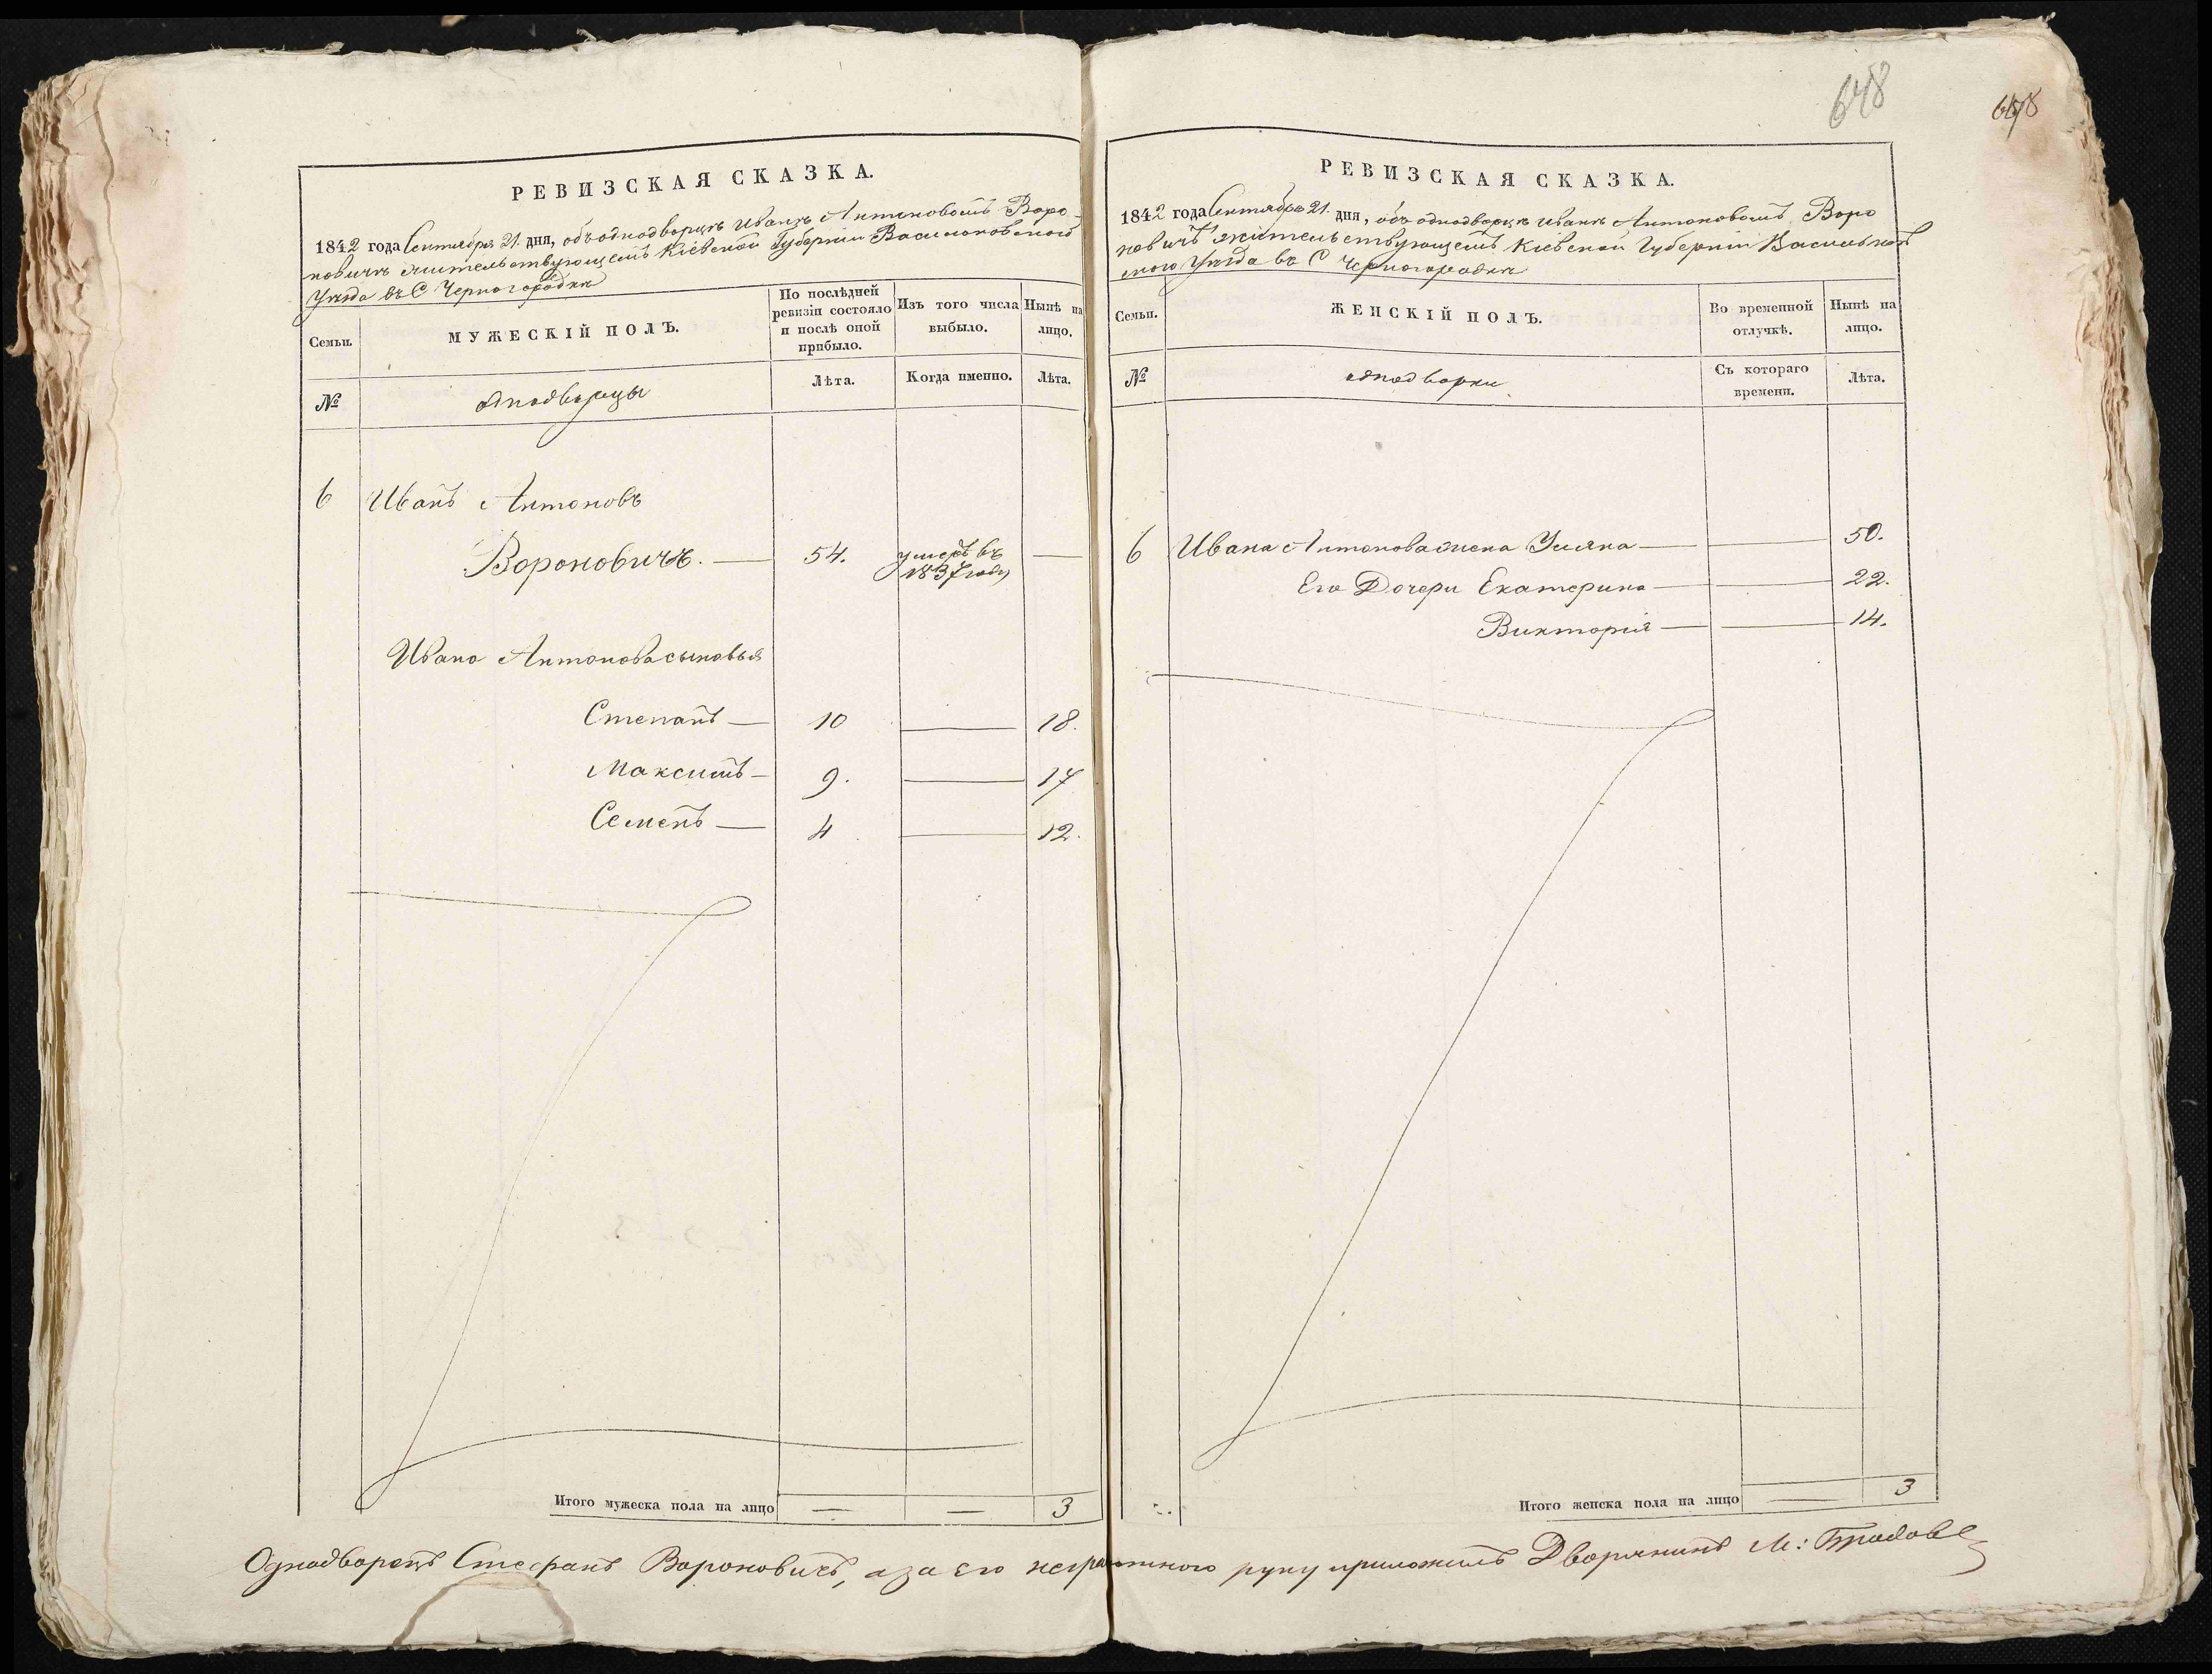 РЕВИЗСКАЯ СКАЗКА.
1842 года Сентября 21. дня, объ однодворцѣ Иванѣ Антоновомъ Воро-
новичѣ жительствующемъ Кіевской Губерніи Васильковского
Уѣзда въ С Черногородкѣ
Семьи.
МУЖЕСКІЙ ПОЛЪ.
По послѣдней ревизіи состояло и послѣ оной прибыло.
Изъ того числа выбыло.
Нынѣ на лицо.
№
однодворцы
Лѣта.
Когда именно.
Лѣта.
6 Иванъ Антоновъ
Вороновичъ. — 54. умеръ въ 1837 году —
Ивана Антонова сыновья
Степанъ — 10 — 18.
Максимъ — 9. — 17
Семенъ — 4 — 12.
Итого мужеска пола на лицо — — 3
648
648
РЕВИЗСКАЯ СКАЗКА.
1842 года Сентября 21. дня, объ однодворцѣ Иванѣ Антоновомъ Воро
новичъ жительствующемъ Кіевской Губерніи Васильков
ского Уѣзда въ С Черногородкѣ
Семьи.
ЖЕНСКІЙ ПОЛЪ.
Во временной отлучкѣ.
Нынѣ на лицо.
№
однодворки
Съ котораго времени.
Лѣта.
6 Ивана Антонова жена Уляна — — 50.
Его Дочери Екатерина — — 22.
Викторія — — 14.
Итого женска пола на лицо — 3
Однодворецъ Стефанъ Вороновичъ, а за его неграмотного руку приложилъ Дворянинъ М: